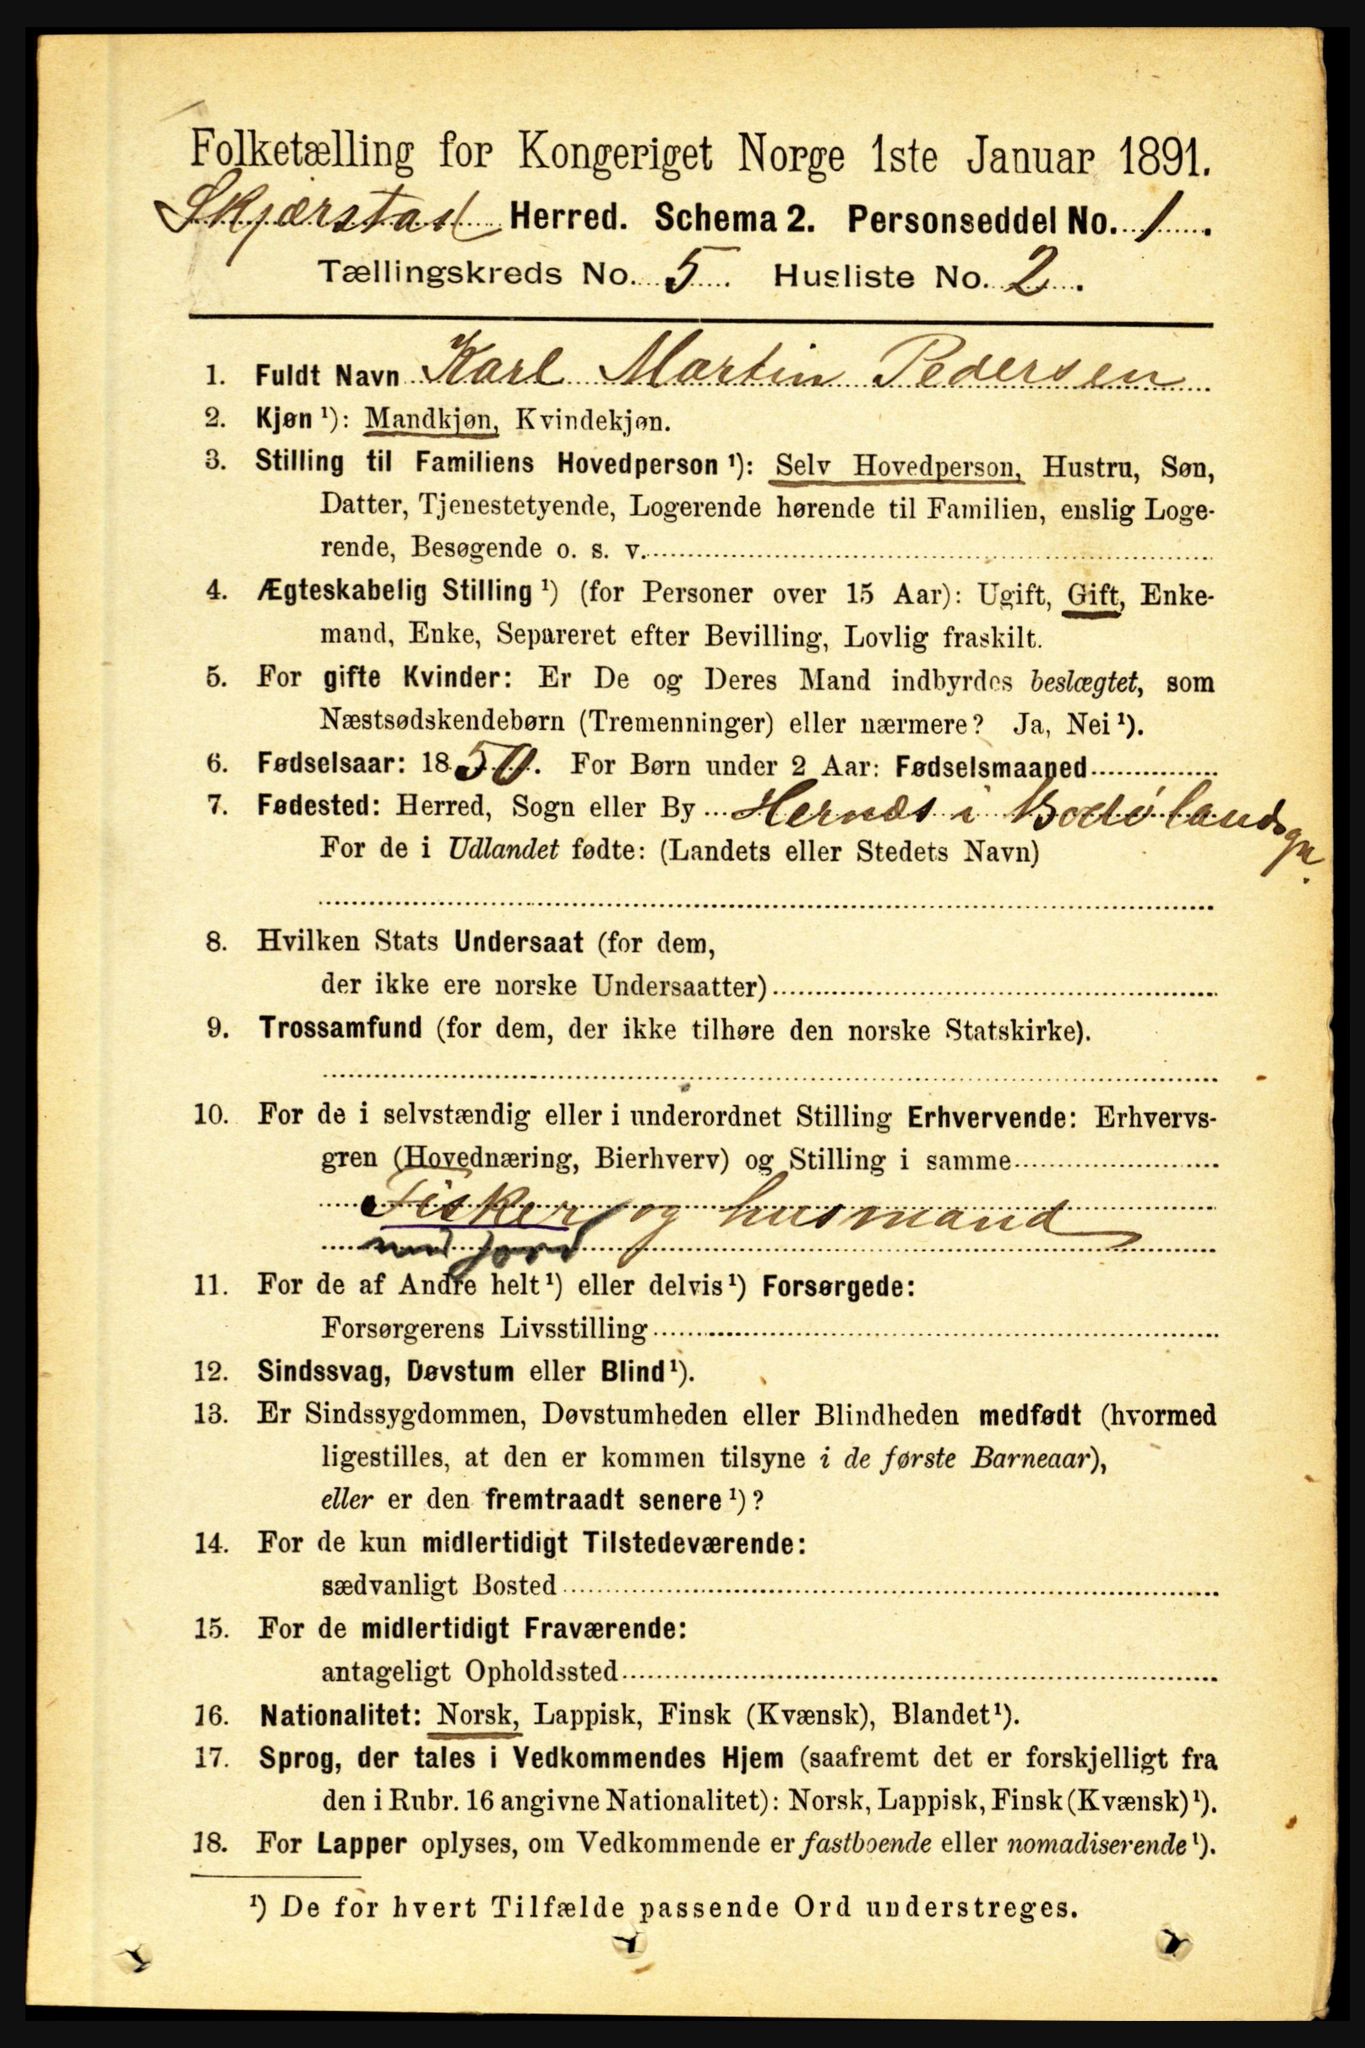 Folketælling for Kongeriget Norge 1ste Januar 1891.
Skjærstad Herred. Schema 2. Personseddel No. 1.
Tællingskreds No. 5. Husliste No. 2.
1. Fuldt Navn Karl Martin Pedersen
2. Kjøn ¹): Mandkjøn, Kvindekjøn.
3. Stilling til Familiens Hovedperson ¹): Selv Hovedperson, Hustru, Søn,
Datter, Tjenestetyende, Logerende hørende til Familien, enslig Loge-
rende, Besøgende o. s. v.
4. Ægteskabelig Stilling ¹) (for Personer over 15 Aar): Ugift, Gift, Enke-
mand, Enke, Separeret efter Bevilling, Lovlig fraskilt.
5. For gifte Kvinder: Er De og Deres Mand indbyrdes beslægtet, som
Næstsødskendebørn (Tremenninger) eller nærmere? Ja, Nei ¹).
6. Fødselsaar: 1850. For Børn under 2 Aar: Fødselsmaaned
7. Fødested: Herred, Sogn eller By Hernæs i Bodø landsogn.
For de i Udlandet fødte: (Landets eller Stedets Navn)
8. Hvilken Stats Undersaat (for dem,
der ikke ere norske Undersaatter)
9. Trossamfund (for dem, der ikke tilhøre den norske Statskirke).
10. For de i selvstændig eller i underordnet Stilling Erhvervende: Erhvervs-
gren (Hovednæring, Bierhverv) og Stilling i samme
Fisker og husmand
med jord
11. For de af Andre helt ¹) eller delvis ¹) Forsørgede:
Forsørgerens Livsstilling
12. Sindssvag, Døvstum eller Blind ¹).
13. Er Sindssygdommen, Døvstumheden eller Blindheden medfødt (hvormed
ligestilles, at den er kommen tilsyne i de første Barneaar),
eller er den fremtraadt senere ¹)?
14. For de kun midlertidigt Tilstedeværende:
sædvanligt Bosted
15. For de midlertidigt Fraværende:
antageligt Opholdssted
16. Nationalitet: Norsk, Lappisk, Finsk (Kvænsk), Blandet ¹).
17. Sprog, der tales i Vedkommendes Hjem (saafremt det er forskjelligt fra
den i Rubr. 16 angivne Nationalitet): Norsk, Lappisk, Finsk (Kvænsk) ¹).
18. For Lapper oplyses, om Vedkommende er fastboende eller nomadiserende ¹).
¹) De for hvert Tilfælde passende Ord understreges.